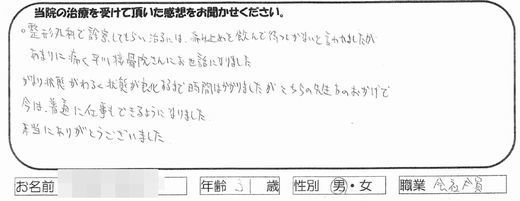 当院の治療を受けて頂いた感想をお聞かせください。
○整形外科で診察してもらい治るには、痛み止めを飲んで待つしかないと言われましたが
あまりに痛く平川接骨院さんにお世話になりました
かなり状態がわるく状態が良化するまで時間はかかりましたがこちらの先生方のおかげで
今は、普通に仕事もできるようになりました
本当にありがとうございました
お名前 年齢 31 歳 性別 男・女 職業 会社員